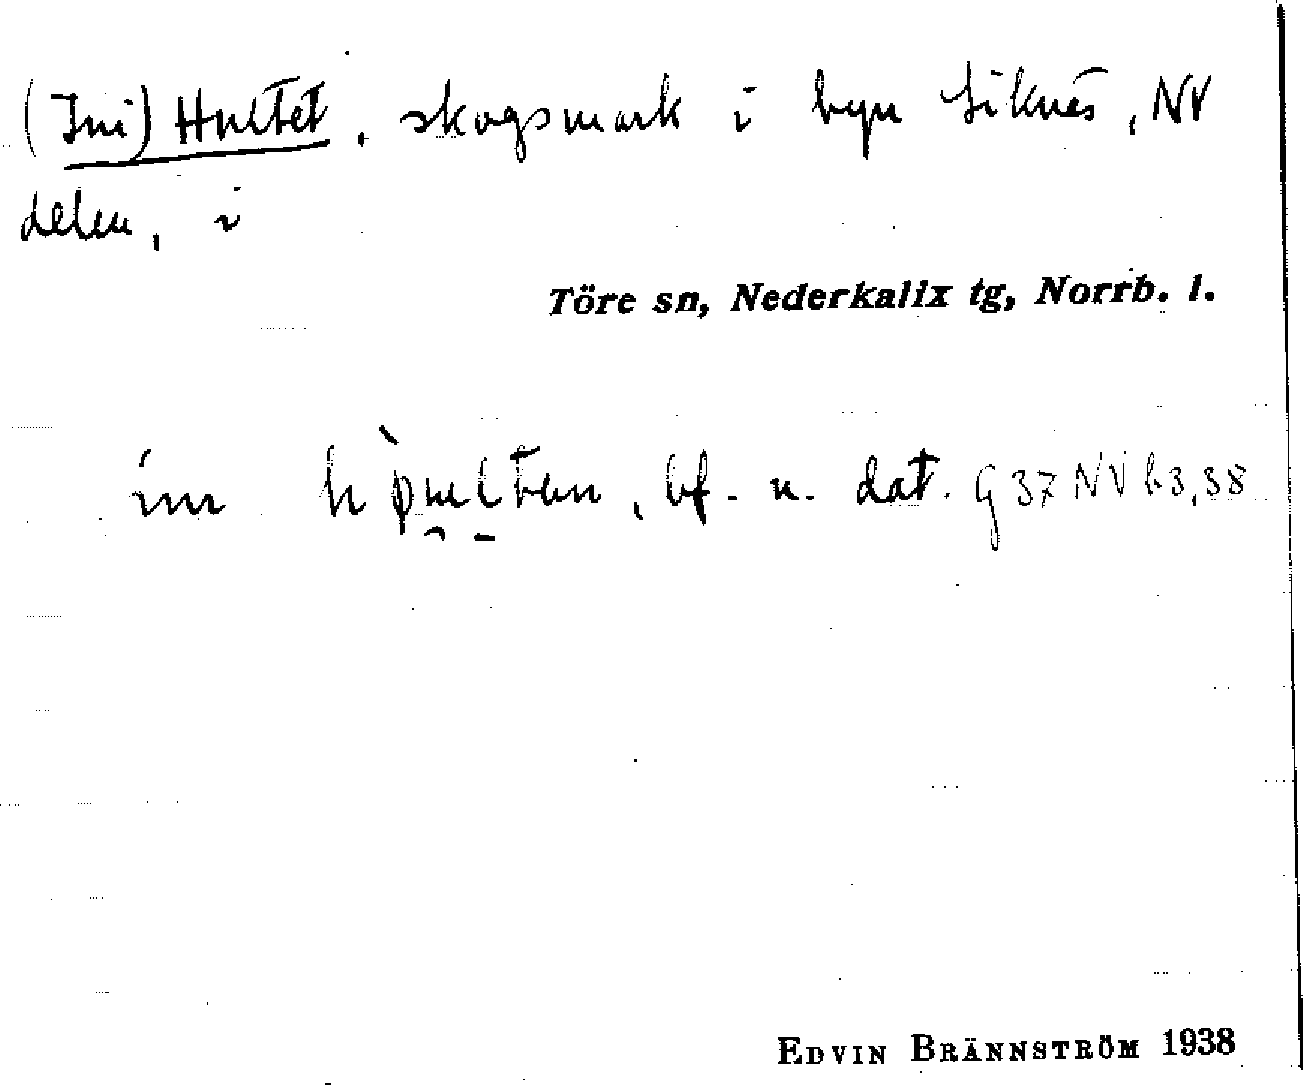 (Ini) Hultet, skogsmark i byn Siknäs, NV
delen, i
Töre sn, Nederkalix tg, Norrb. l.
bf. n. dat. G 37 NV b3,38
EDVIN BRÄNNSTRÖM 1938